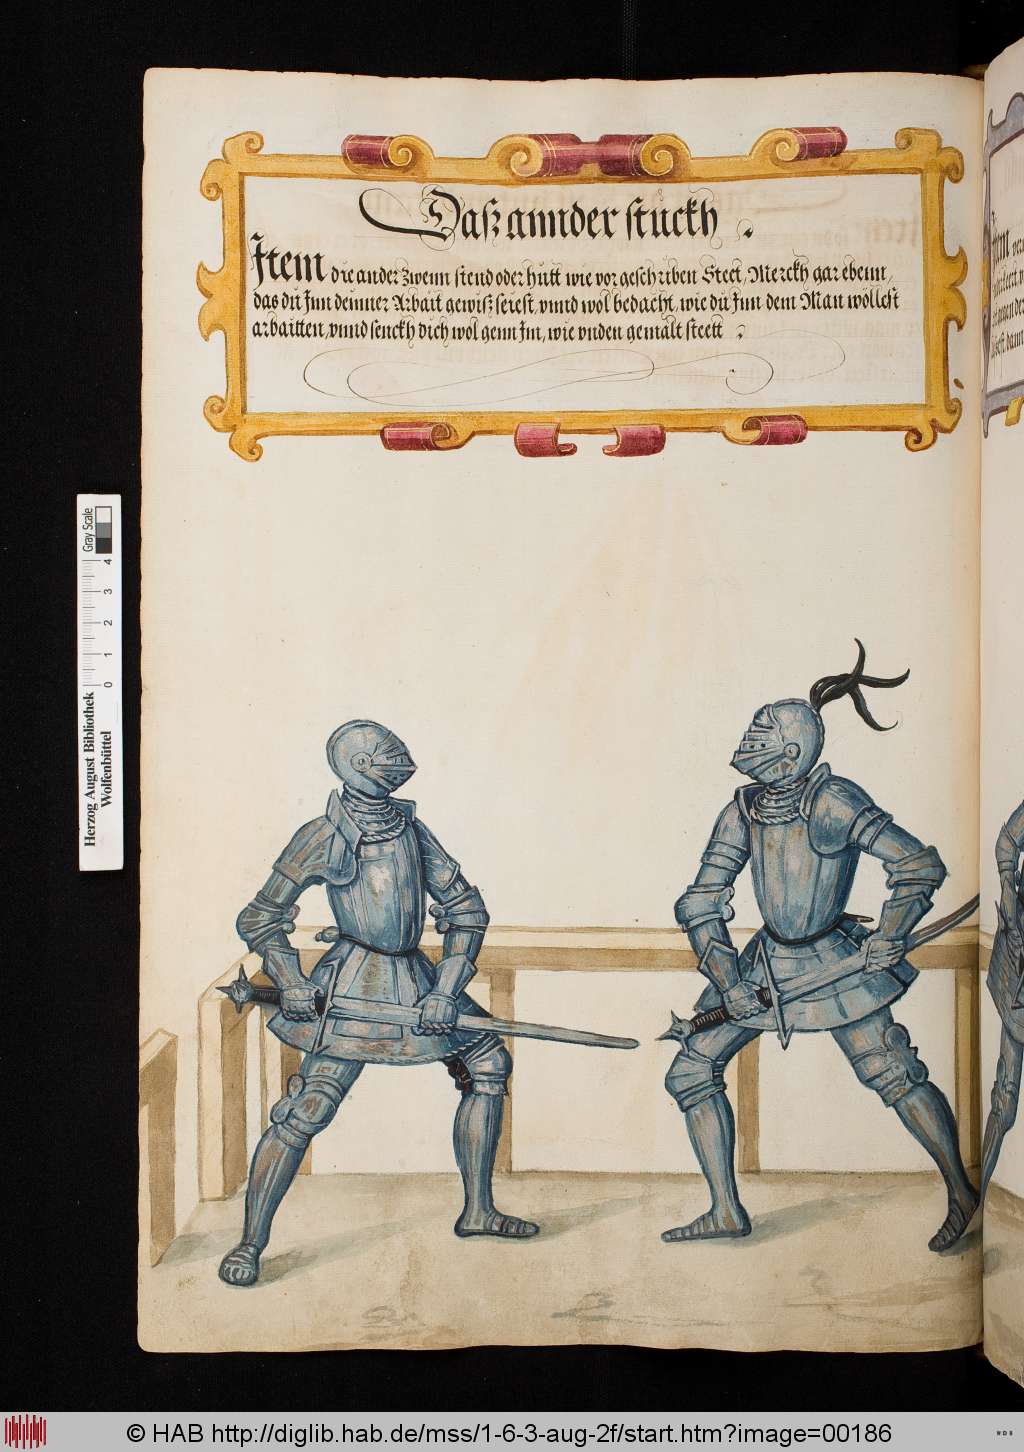 Daß annder stuckh .
Item die ander zwenn stend oder hutt wie vor geschriben Steet, Merckh gar ebenn,
das dü Inn deinner Arbait gewiß seiest, vnnd wol bedacht, wie dü Inn dem Man wöllest
arbaitten, vnnd senckh dich wol genn Im, wie vnden gemalt steett .
Herzog August Bibliothek
Wolfenbüttel
0 1 2 3 4
Gray Scale
© HAB http://diglib.hab.de/mss/1-6-3-aug-2f/start.htm?image=00186